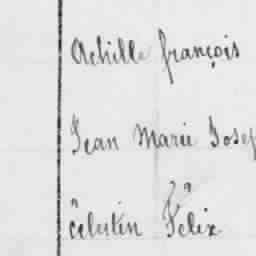 Achille françois
Jean Marie Josep
célestin Felix